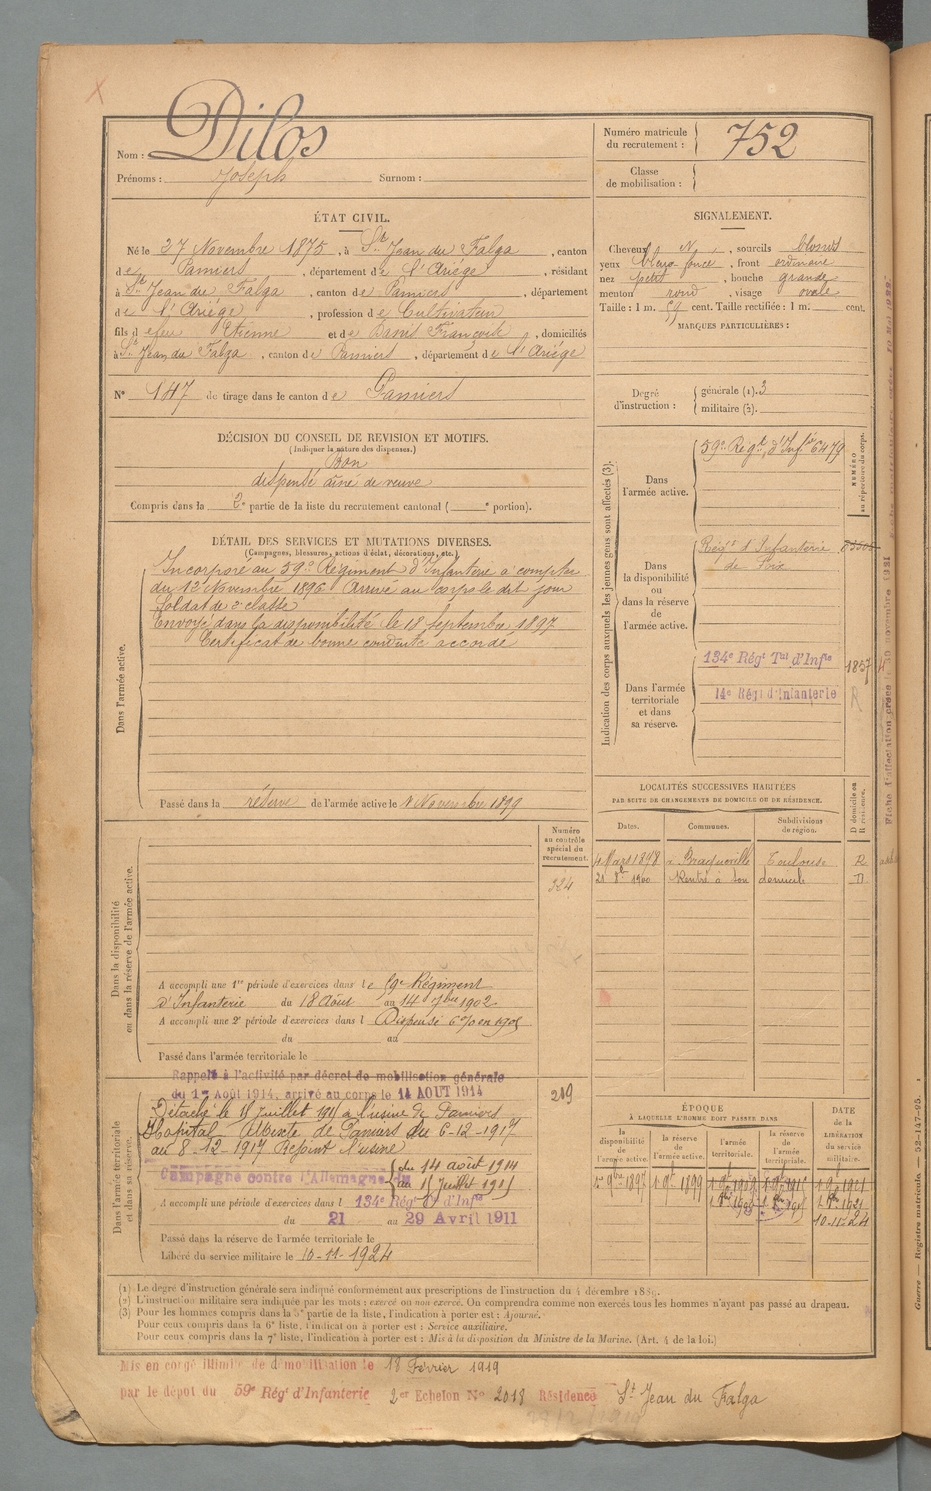 Nom : Dilos
Prénoms : Joseph Surnom :
Numéro matricule du recrutement : 752
Classe de mobilisation :
ÉTAT CIVIL.
Né le 27 Novembre 1875, à St Jean du Falga, canton
de Pamiers, département de l'Ariège, résidant
à St Jean du Falga, canton de Pamiers, département
de l'Ariège, profession de Cultivateur
fils de feu Etienne et de Françoise, domiciliés
à St Jean du Falga, canton de Pamiers, département de l'Ariège
N° 147 de tirage dans le canton de Pamiers
SIGNALEMENT.
Cheveux N, sourcils blonds
yeux foncé, front ordinaire
nez petit, bouche grande
menton rond, visage ovale
Taille : 1 m. 59 cent. Taille rectifiée : 1 m. cent.
MARQUES PARTICULIÈRES :
Degré d'instruction : générale (1). 3
militaire (2).
DÉCISION DU CONSEIL DE REVISION ET MOTIFS.
(Indiquer la nature des dispenses.)
Bon
dispensé aîné de veuve
Compris dans la 2e partie de la liste du recrutement cantonal ( e portion).
DÉTAIL DES SERVICES ET MUTATIONS DIVERSES.
(Campagnes, blessures, actions d'éclat, décorations, etc.)
Dans l'armée active.
Incorporé au 59e Régiment d'Infanterie à compter
du 12 Novembre 1896 Arrivé au corps le dit jour
Soldat de 2e classe
Envoyé dans la disponibilité le 18 Septembre 1897
Certificat de bonne conduite accordé
Passé dans la réserve de l'armée active le 1 Novembre 1899
Indication des corps auxquels les jeunes gens sont affectés (3).
NUMÉRO au répertoire du corps.
Dans l'armée active.
59e Régt d'Infie 6479
Dans la disponibilité ou dans la réserve de l'armée active.
Régt d'Infanterie
de Foix
Dans l'armée territoriale et dans sa réserve.
134e Régt Tal d'Infie 1857
14e Régt d'Infanterie R
LOCALITÉS SUCCESSIVES HABITÉES
PAR SUITE DE CHANGEMENTS DE DOMICILE OU DE RÉSIDENCE.
Dates. Communes. Subdivisions de région. D domicile ou R résidence.
4 Mars 1898 à Braqueville Toulouse R
1900 Rentré à son domicile D
Numéro au contrôle spécial du recrutement.
324
Dans la disponibilité ou dans la réserve de l'armée active.
A accompli une 1re période d'exercices dans le 59e Régiment
d'Infanterie du 18 Août au 14 7bre 1902
A accompli une 2e période d'exercices dans l Dispensé 6% en 1905
du au
Passé dans l'armée territoriale le
Dans l'armée territoriale et dans sa réserve.
Rappelé à l'activité par décret de mobilisation générale
du 1er Août 1914, arrivé au corps le 14 AOUT 1914
249
Détaché le 15 Juillet 1915 à l'usine de Pamiers
Hopital Mixte de Pamiers du 6-12-1917
au 8-12-1917 Rejoint l'usine
Campagne contre l'Allemagne
du 14 août 1914
au 15 Juillet 1915
A accompli une période d'exercices dans l 134e Régt Tal d'Infie
du 21 au 29 Avril 1911
Passé dans la réserve de l'armée territoriale le
Libéré du service militaire le 10-11-1924
ÉPOQUE
À LAQUELLE L'HOMME DOIT PASSER DANS
DATE DE LA LIBÉRATION du service militaire.
la disponibilité de l'armée active. la réserve de l'armée active. l'armée territoriale. la réserve de l'armée territoriale.
1er 9bre 1897 1 9bre 1899
10-11-24
(1) Le degré d'instruction générale sera indiqué conformément aux prescriptions de l'instruction du 4 décembre 1889.
(2) L'instruction militaire sera indiquée par les mots : exercé ou non exercé. On comprendra comme non exercés tous les hommes n'ayant pas passé au drapeau.
(3) Pour les hommes compris dans la 5e partie de la liste, l'indication à porter est : Ajourné.
Pour ceux compris dans la 6e liste, l'indication à porter est : Service auxiliaire.
Pour ceux compris dans la 7e liste, l'indication à porter est : Mis à la disposition du Ministre de la Marine. (Art. 4 de la loi.)
Mis en congé illimité de démobilisation le 18 Février 1919
par le dépôt du 59e Régt d'Infanterie 2er Echelon No 2018 Résidence St Jean du Falga
Guerre — Registre matricule. — 52-147-95.